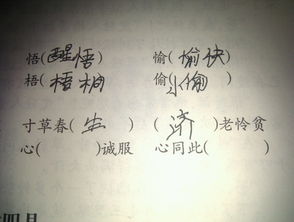 悟(醒悟) 愉(愉快)
梧(梧桐) 偷(小偷)
寸草春(生) (济)老怜贫
心( )诚服 心同此( )